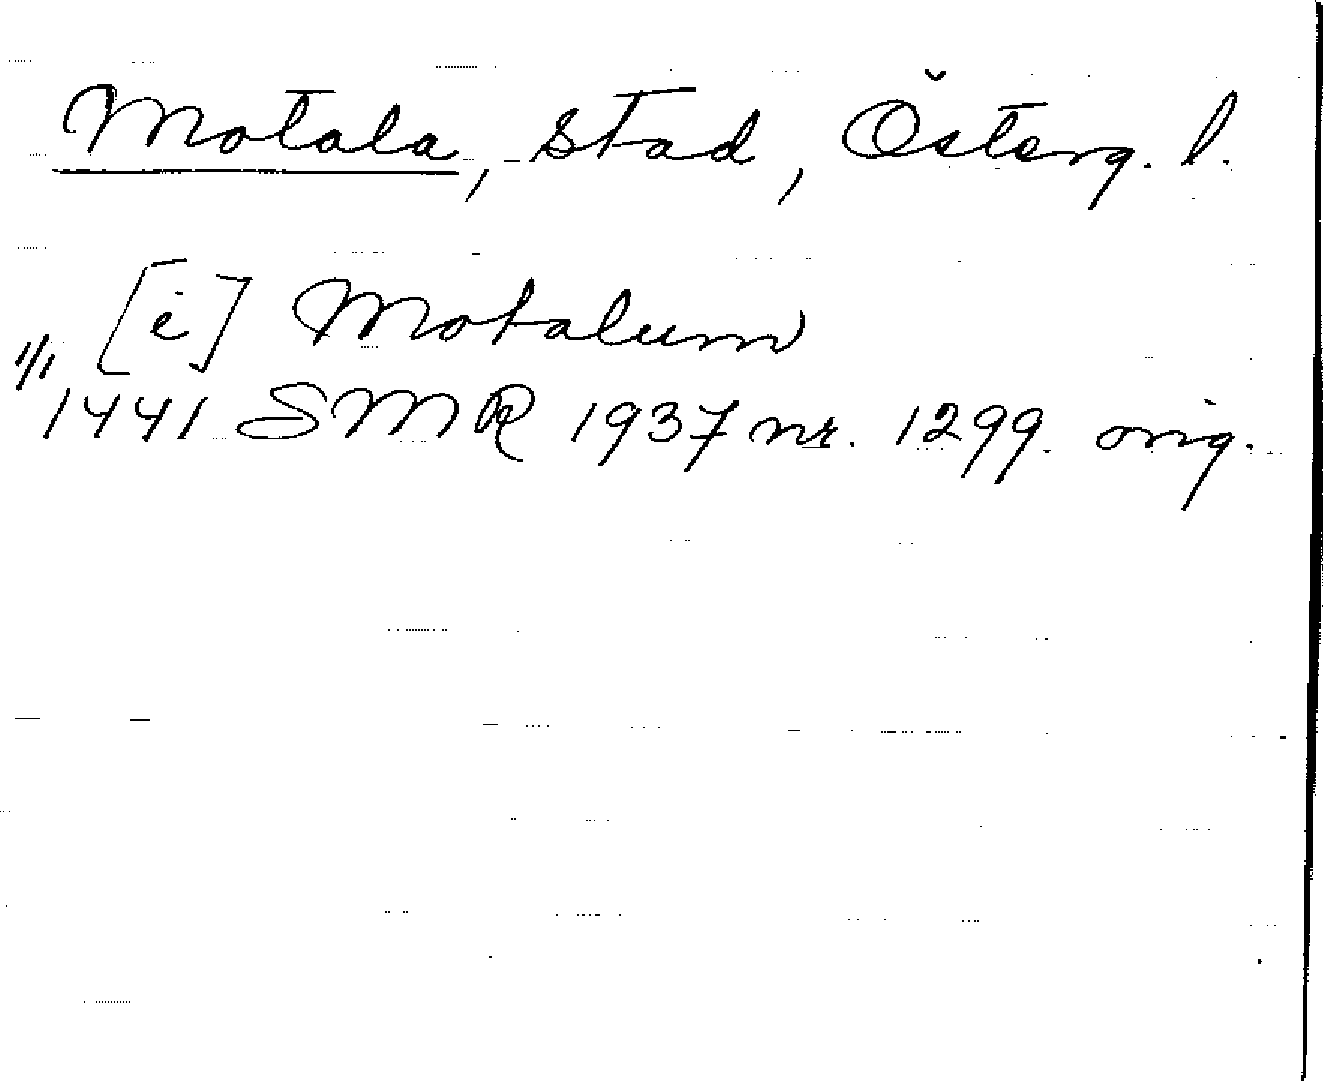 Motala, stad, Österg. l.
[i] Motalum
1/1 1441 SMR 1937 nr. 1299. orig.